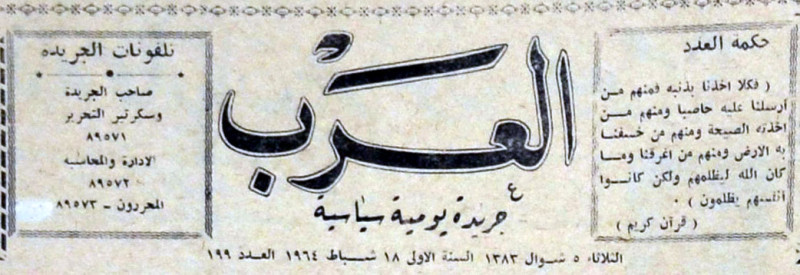 حكمة العدد
( فكلا اخذنا بذنبه فمنهم من
ارسلنا عليه حاصبا ومنهم من
اخذته الصيحة ومنهم من خسفنا
به الارض ومنهم من اغرقنا وما
كان الله ليظلمهم ولكن كانوا
انفسهم يظلمون ) .
( قرآن كريم )
العرب
جريدة يومية سياسية
تلفونات الجريده
صاحب الجريدة
وسكرتير التحرير
٨٩٥٧١
الادارة والمحاسبه
٨٩٥٧٢
المحررون - ٨٩٥٧٣
الثلاثاء ٥ شوال ١٣٨٣ السنة الاولى ١٨ شباط ١٩٦٤ العدد ١٩٩